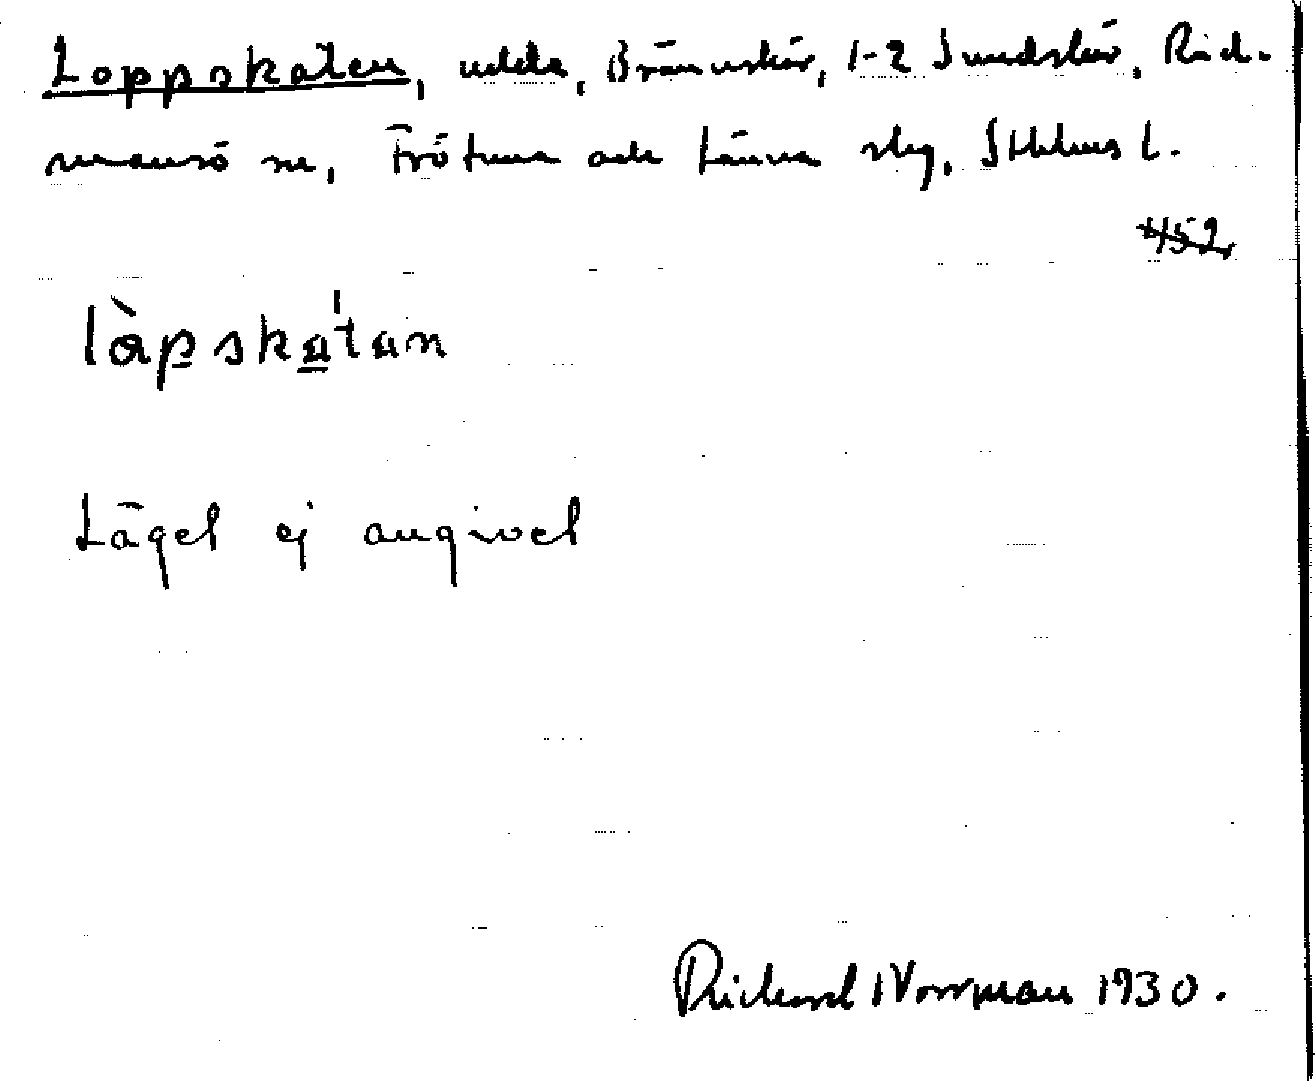 Loppskaten, udde, Brännskär, 1-2 Sundskär, Räd-
mansö sn, Frötuna och Länna skg, Sthlms l.
452
làpskatan
Läget ej angivet
Rickard Norrman 1930.